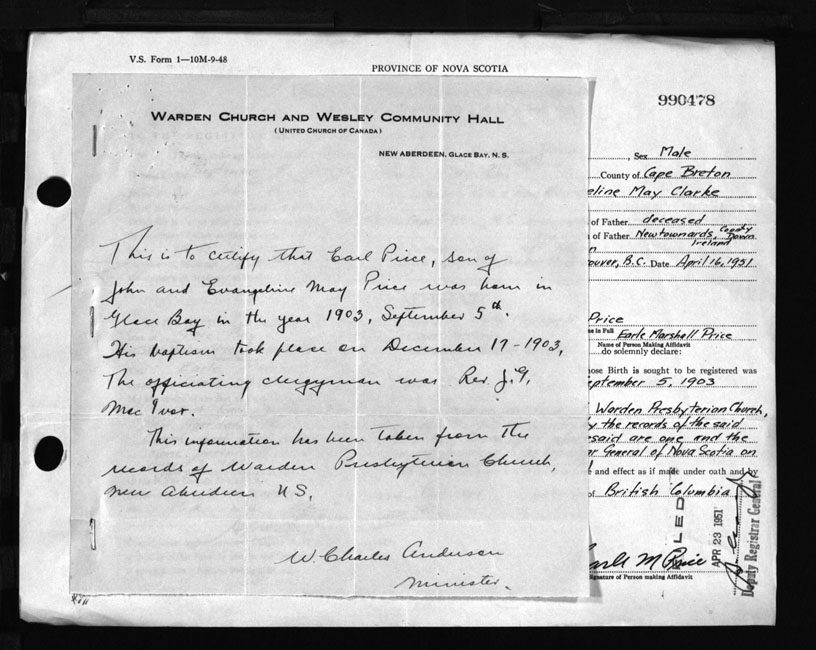 V.S. Form 1—10M-9-48
PROVINCE OF NOVA SCOTIA
990478
WARDEN CHURCH AND WESLEY COMMUNITY HALL
(UNITED CHURCH OF CANADA)
NEW ABERDEEN, GLACE BAY, N. S.
This is to certify that Earl Price, son of
John and Evangeline May Price was born in
Glace Bay in the year 1903, September 5th.
His baptism took place on December 17-1903,
The officiating clergyman was Rev. J. 
Mac Ivor.
This information has been taken from the
records of Warden Presbyterian Church,
New Aberdeen N.S.
W. Charles Anderson
Minister.
, Sex Male
County of Cape Breton
eline May Clarke
of Father deceased
of Father Newtownards, County Down
Ireland
n
ouver, B.C. Date April 16, 1951
Price
e in Full Earle Marshall Price
Name of Person Making Affidavit
do solemnly declare:
hose Birth is sought to be registered was
eptember 5, 1903
Warden Presbyterian Church,
y the records of the said
esaid are one and the
ar General of Nova Scotia on
e and effect as if made under oath and by
of British Colombia
LED
APR 23 1951
Deputy Registrar General
arle M Price
Signature of Person making Affidavit